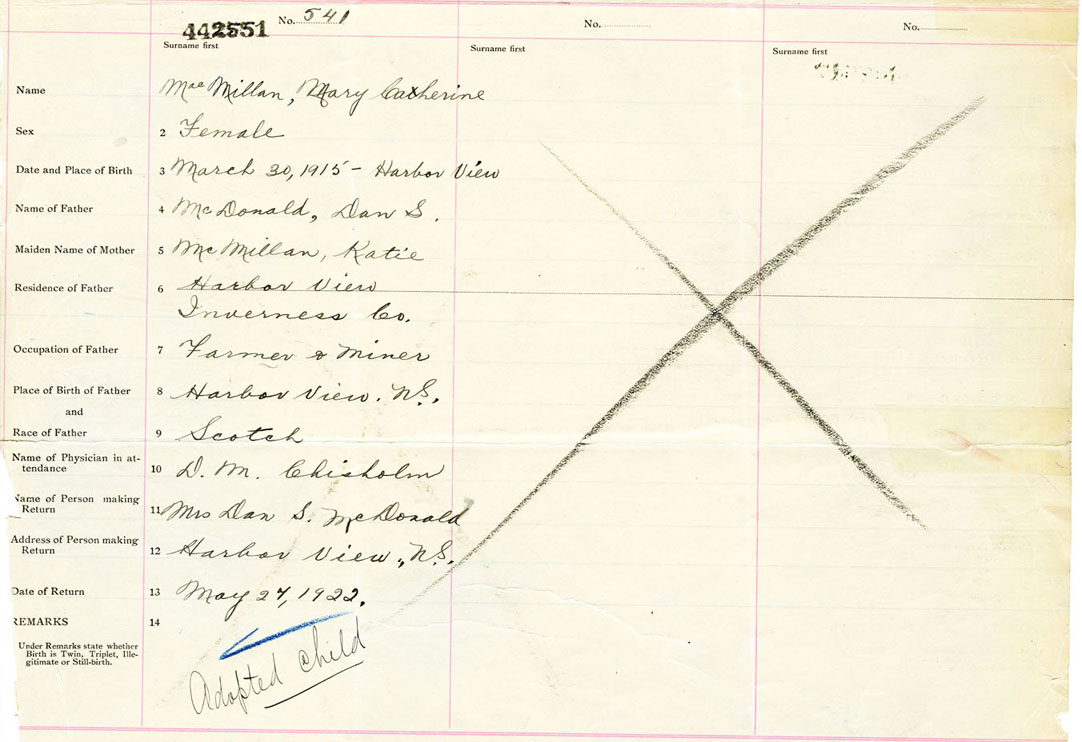 442551 No. 541 No. No.
Surname first Surname first Surname first
Name MacMillan, Mary Catherine
Sex 2 Female
Date and Place of Birth 3 March 30, 1915 - Harbor View
Name of Father 4 McDonald, Dan S.
Maiden Name of Mother 5 McMillan, Katie
Residence of Father 6 Harbor View
Inverness Co.
Occupation of Father 7 Farmer & Miner
Place of Birth of Father 8 Harbor View. N.S.
and
Race of Father 9 Scotch
Name of Physician in at-
tendance 10 D. M. Chisholm
Name of Person making
Return 11 Mrs Dan S. McDonald
Address of Person making
Return 12 Harbor View, N.S.
Date of Return 13 May 27, 1922.
REMARKS 14
Under Remarks state whether
Birth is Twin, Triplet, Ille-
gitimate or Still-birth.
Adopted child